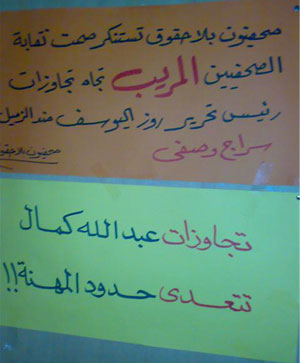 صحفيون بلا حقوق تستنكر صمت نقابة
الصحفيين المريب تجاه تجاوزات
رئيس تحرير روز اليوسف ضد الزميل
سراج وصفي
صحفيون بلا حقوق
تجاوزات عبد الله كمال
تتعدى حدود المهنة!!